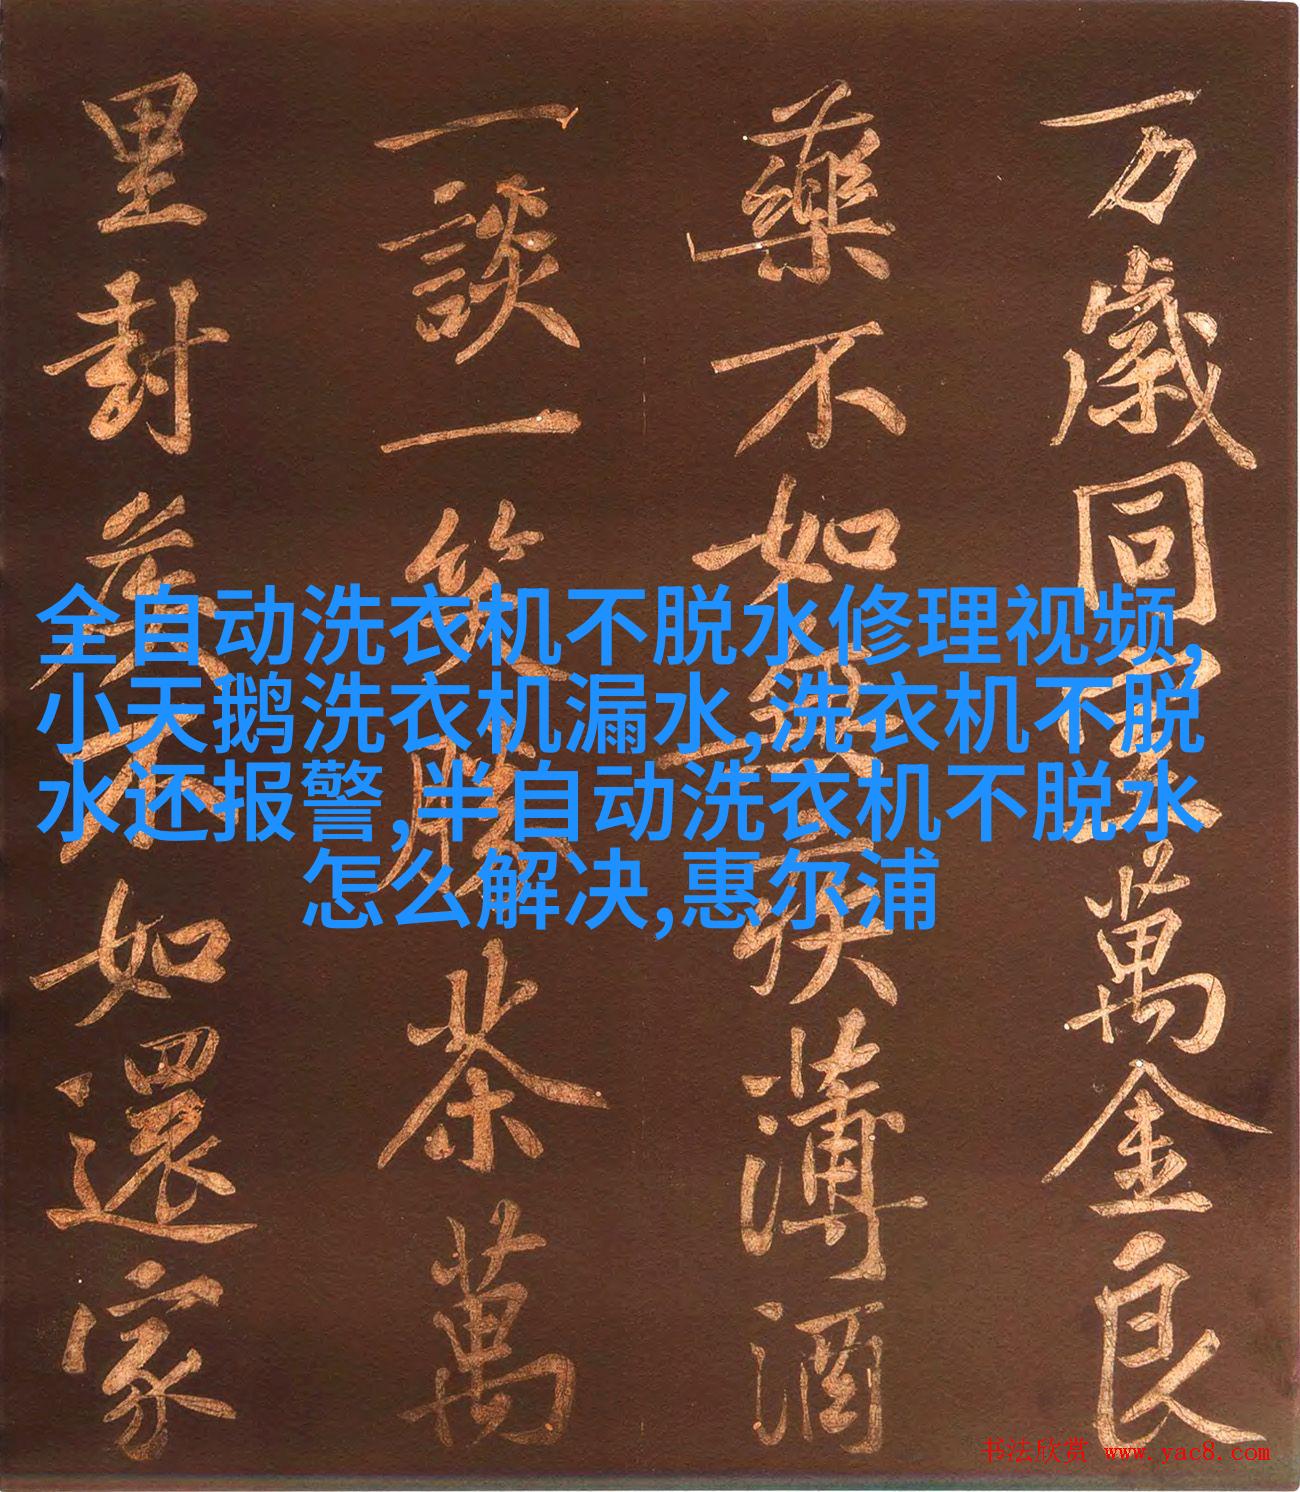 万歲同
萬金良
藥不如無
疾薄酒
一談一笑勝
茶萬
里封侯不
如還家
全自动洗衣机不脱水修理视频,
小天鹅洗衣机漏水,洗衣机不脱
水还报警,半自动洗衣机不脱水
怎么解决,惠尔浦
书法欣赏 www.yac8.com